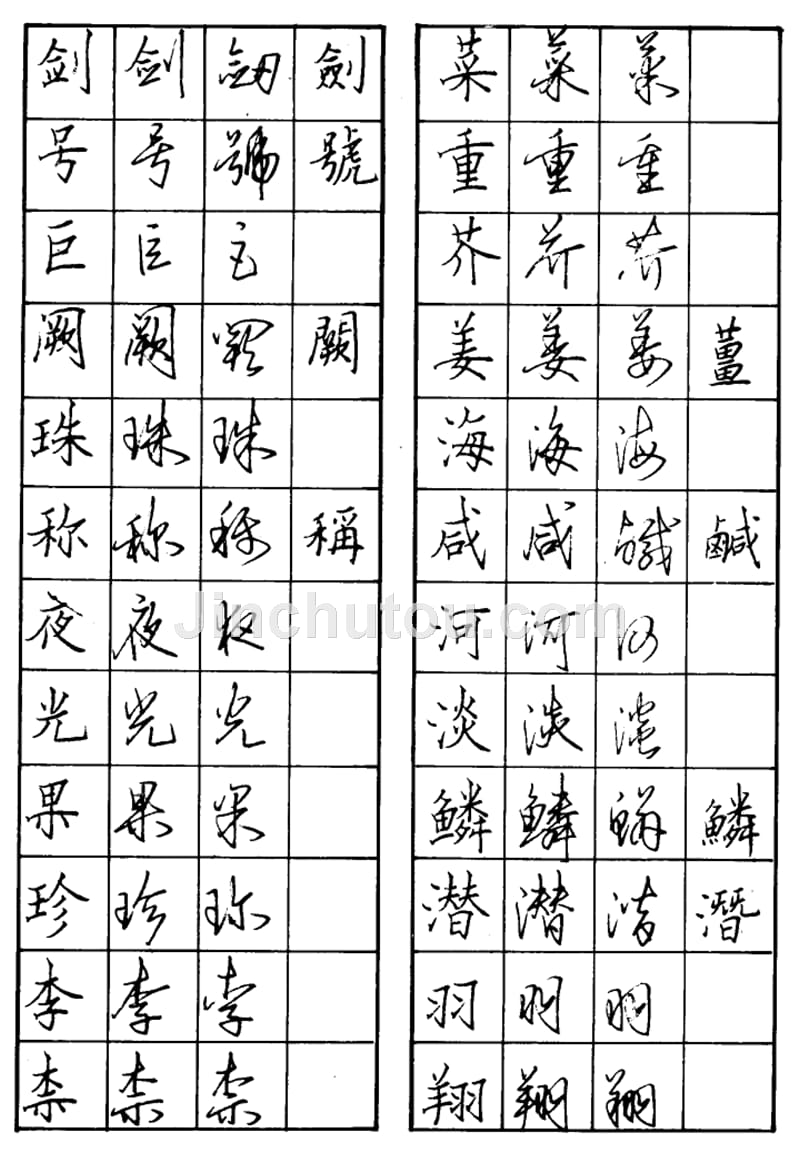 剑 剑 剱 劍
号 号 號 號
巨 巨 巨
阙 阙 阙 闕
珠 珠 珠
称 称 称 稱
夜 夜 夜
光 光 光
果 果 果
珍 珍 珍
李 李 李
柰 柰 柰
菜 菜 菜
重 重 重
芥 芥 芥
姜 姜 姜 薑
海 海 海
咸 咸 鹹 鹹
河 河 河
淡 淡 淡
鳞 鳞 鳞 鱗
潜 潜 潜 潛
羽 羽 羽
翔 翔 翔
Jinchutou.com